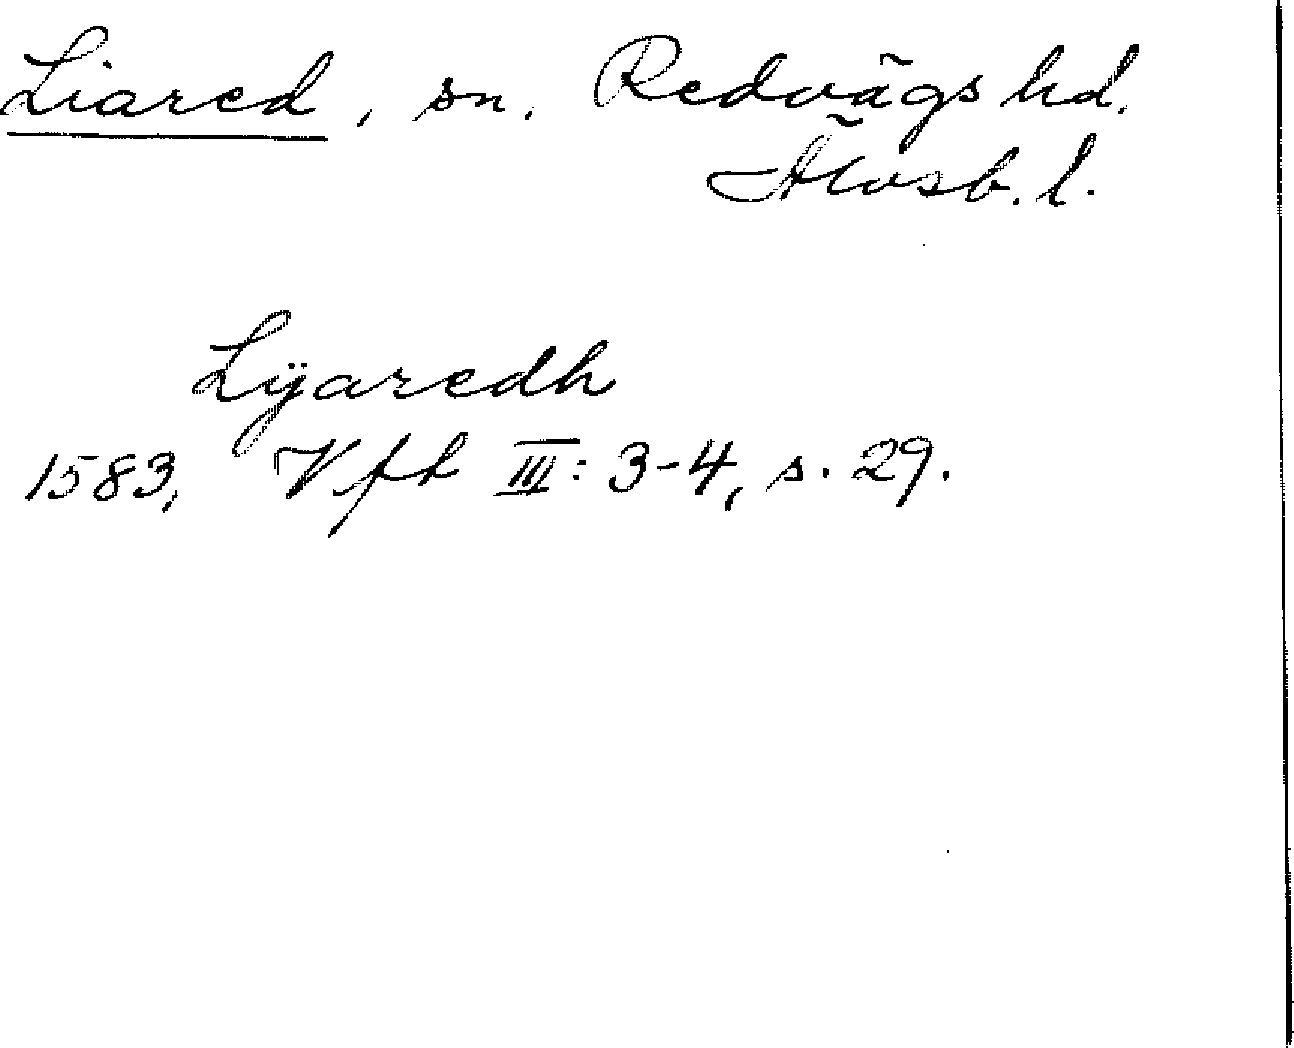 Liared, sn. Redvägs hd.
Älvsb. l.
Lÿaredh
1583, Vfh III: 3-4, s. 29.